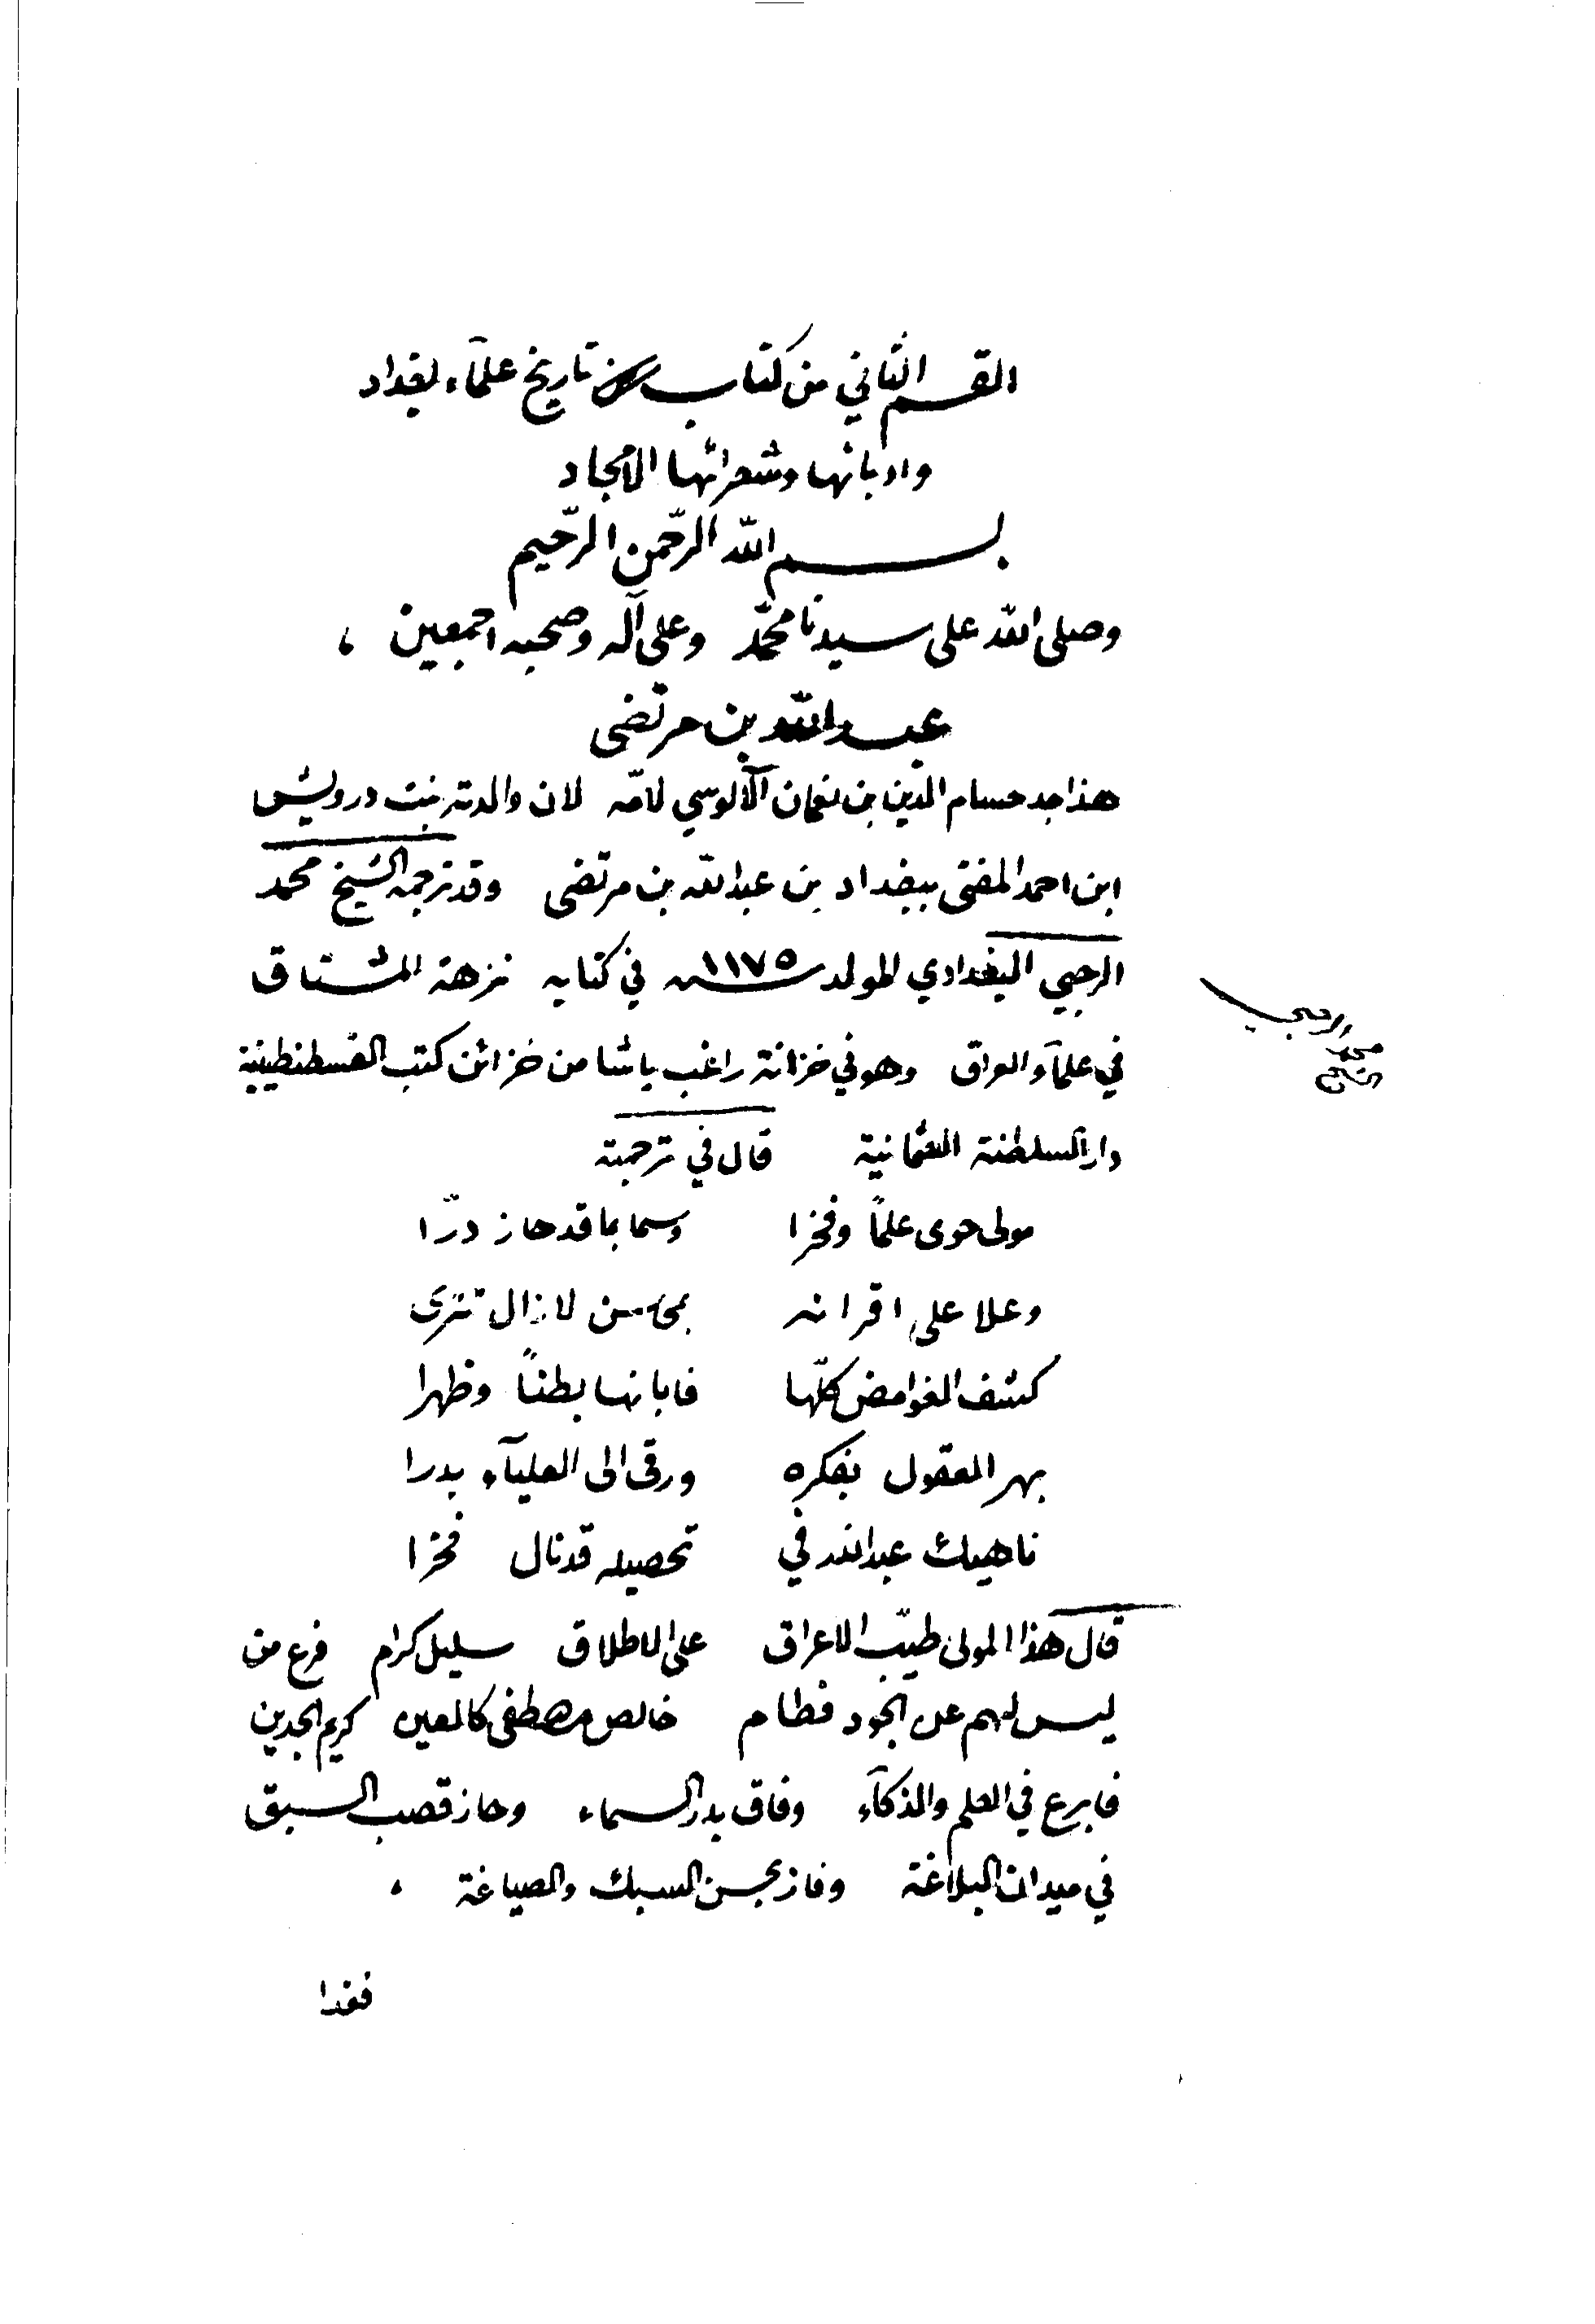 القسم الثاني من كتاب تاريخ علمآء بغداد
وادبائها وشعرائها الأمجاد
بسم الله الرّحمن الرّحيم
وصلى الله على سيدنا محمّد وعلى آله وصحبه اجمعين ،
عبد الله بن مرتضى
هذا جد حسام الدين بن نعمان الآلوسي لامّه لان والدته بنت درويش
ابن احمد المفتى ببغداد بن عبد الله بن مرتضى وقد ترجمه الشيخ محمد
الرحبي البغدادي المولد سنه ١١٧٥ في كتابه نزهة المشتاق
في علمآء العراق وهو في خزانة راغب پاشا من خزائن كتب القسطنطينية
دار السلطنة العثمانية قال في ترجمته
مولى حوى علمًا وفخرا وسما بما قد حاز درّا
وعلا على اقرانه بمحاسن لا زال تترى
كشف الغوامض كلّها فابانها بطنًا وظهرا
بهر العقول بفكره ورقى الى العليآء بدرا
ناهيك عبد الله في تحصيله قد نال فخرا
قال هذا المولى طيّب الاعراق على الاطلاق سليل كرام فرع من
ليس لهم عن الجود فطام خالص مصطفى كالمعين كريم الجدين
فابرع في العلم والذكآء وفاق بدر السماء وحاز قصب السبق
في ميدان البلاغة وفاز بحسن السبك والصياغة ،
فغدا
الشيخ
محمد
الرحبي